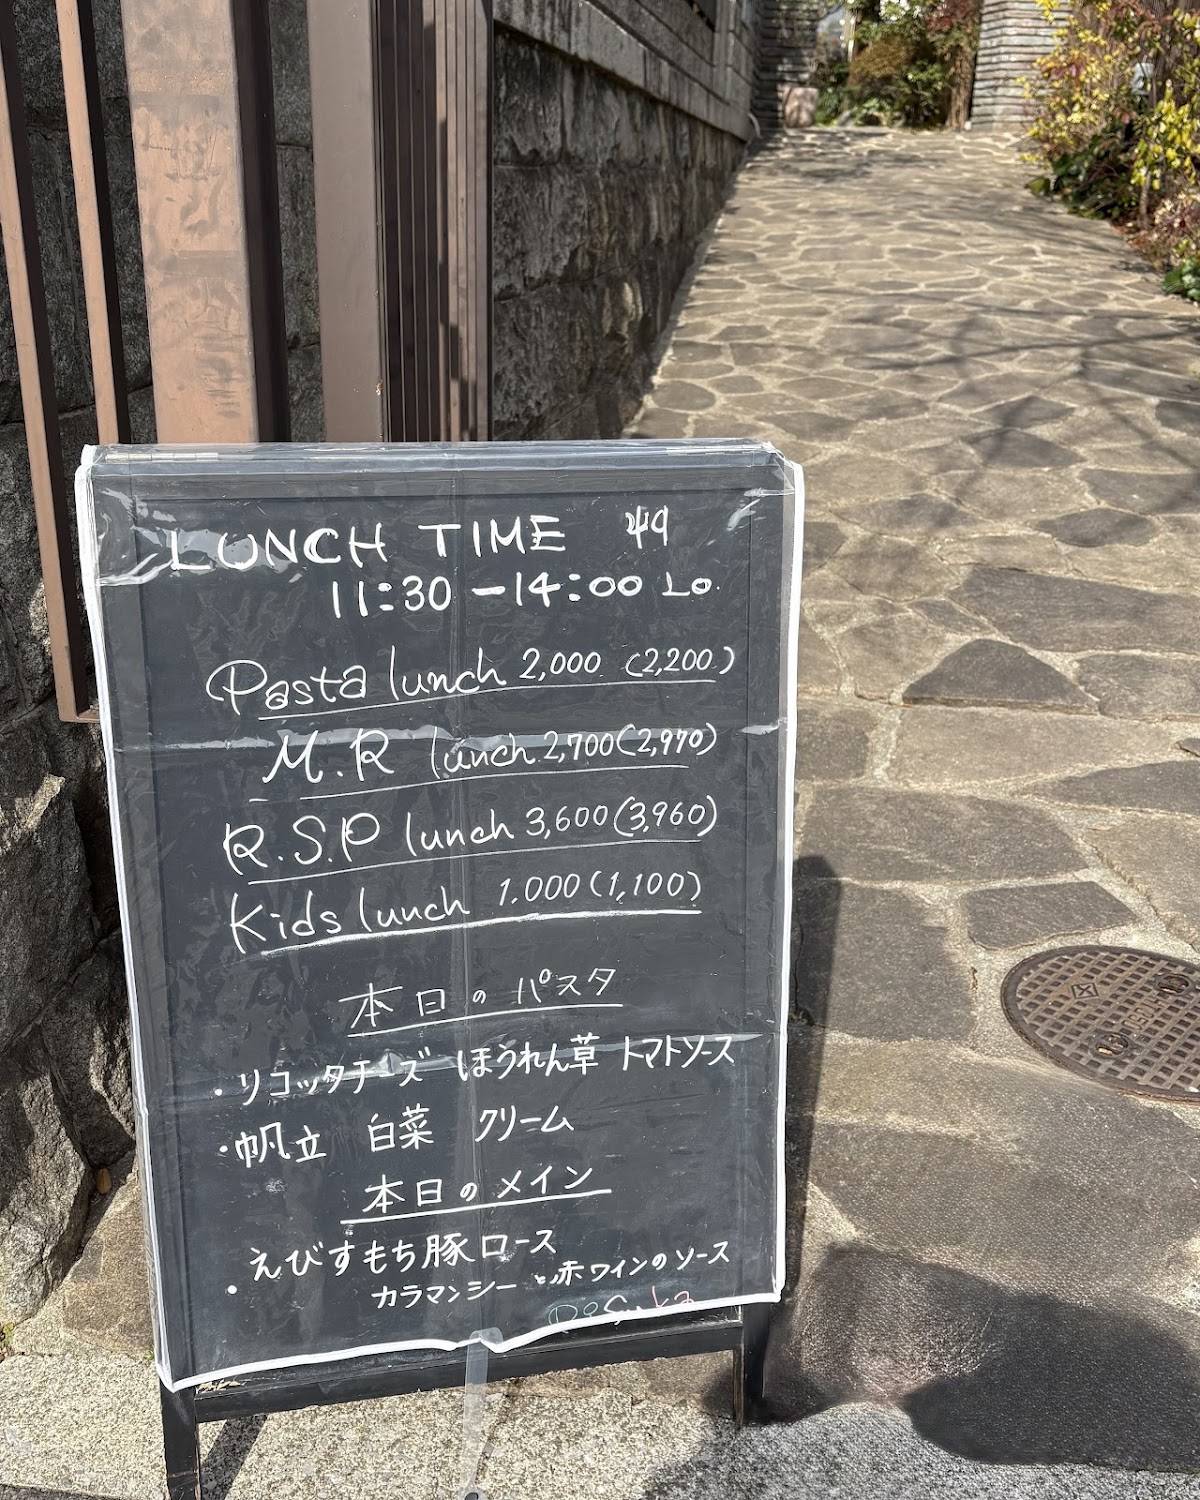 LUNCH TIME
11:30-14:00 Lo.
Pasta lunch 2,000 (2,200)
M.R lunch 2,700(2,970)
R.S.P lunch 3,600(3,960)
Kids lunch 1.000(1,100)
本日の パスタ
・リコッタチーズ ほうれん草 トマトソース
・帆立 白菜 クリーム
本日のメイン
・えびすもち豚ロース
カラマンシーと赤ワインのソース